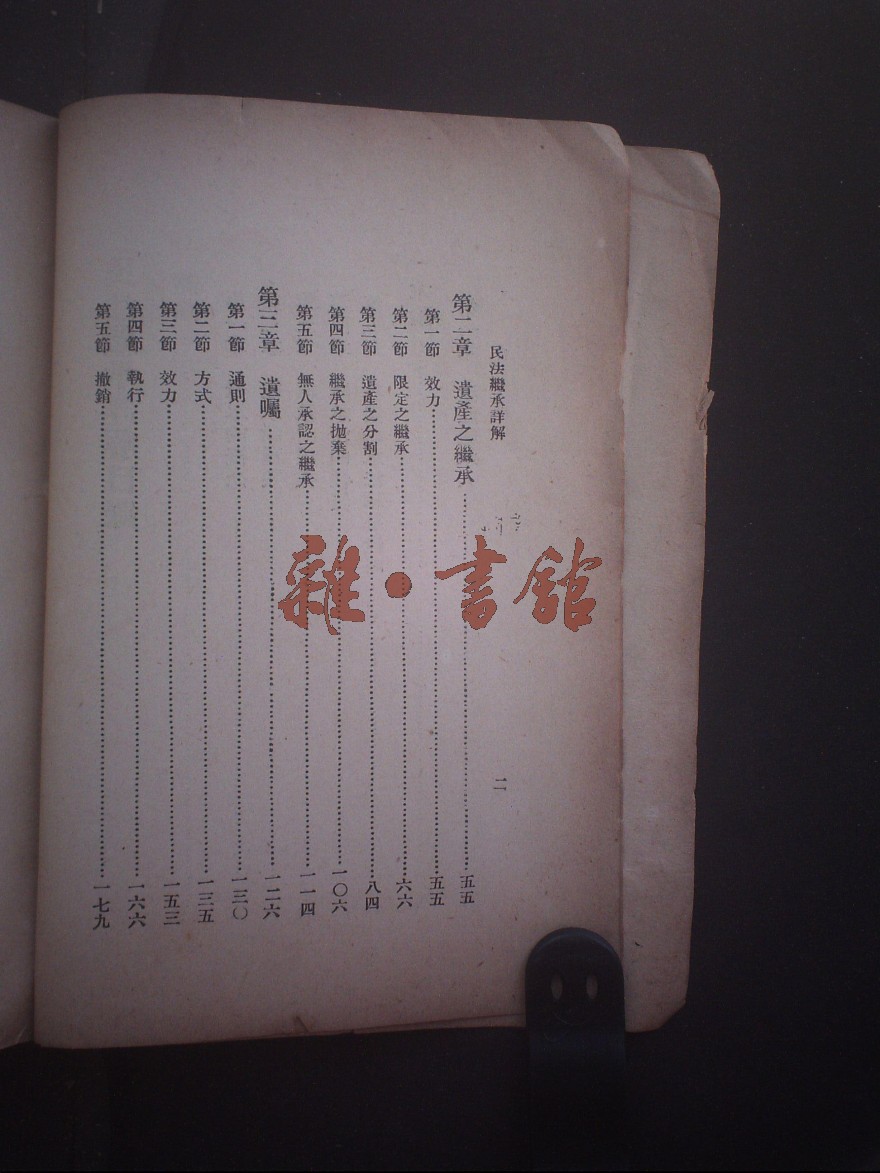 民法繼承詳解
二
第二章 遺產之繼承……五五
第一節 效力……五五
第二節 限定之繼承……六六
第三節 遺產之分割……八四
第四節 繼承之拋棄……一〇六
第五節 無人承認之繼承……一一四
第三章 遺囑……一二六
第一節 通則……一三〇
第二節 方式……一三五
第三節 效力……一五三
第四節 執行……一六六
第五節 撤銷……一七九
雜·書館